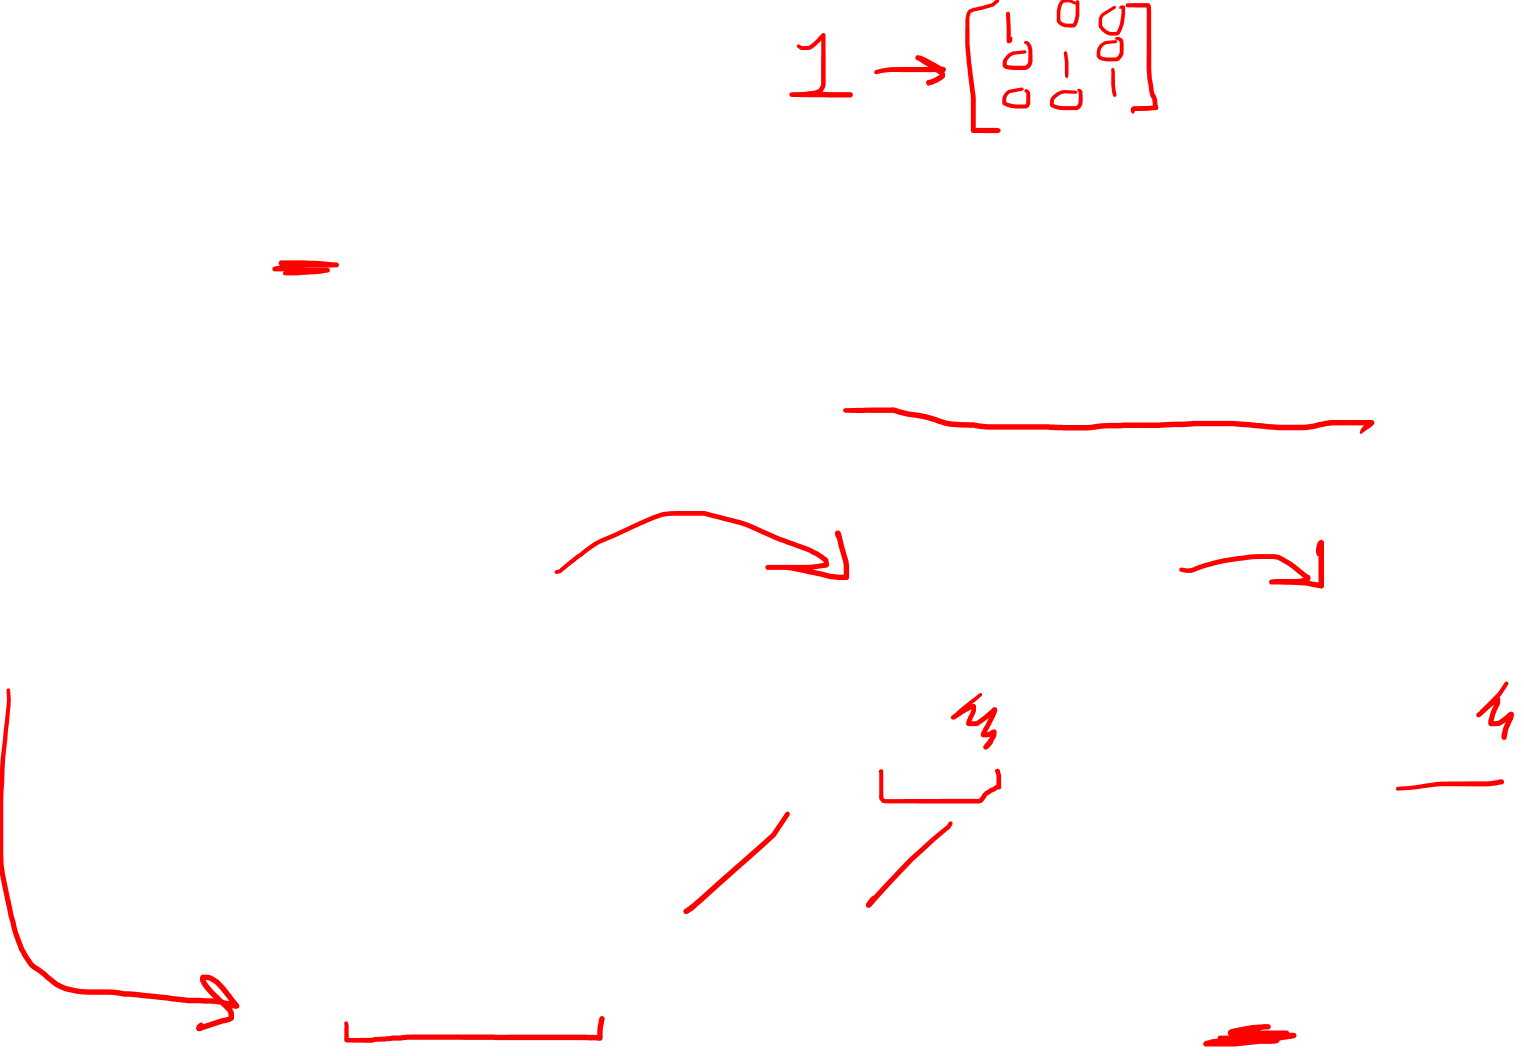 1 → [1 0 0
0 1 0
0 0 1]